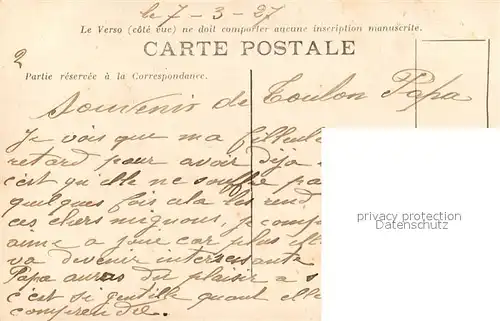 le 7-3-27
Le Verso (côté vue) ne doit comporter aucune inscription manuscrite.
CARTE POSTALE
2
Partie réservée à la Correspondance.
Souvenir de Toulon Papa
Je vois que ma filleule
retard pour avoir dèja
c'est qu'elle ne souffre pa
quelques fois cela les rend
ces chers mignons, je comp
aime a joué car plus ell
va devenir interessante
Papa auras du plaisir a s
c'est si gentille quant elle
comprendre.
privacy protection
Datenschutz